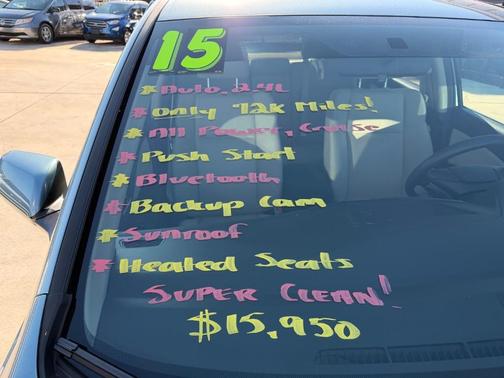 15
* Auto, 2.4L
* Only 92K Miles!
* All Power, Cruise
* Push Start
* Bluetooth
* Backup Cam
* Sunroof
* Heated Seats
SUPER CLEAN!
$15,950